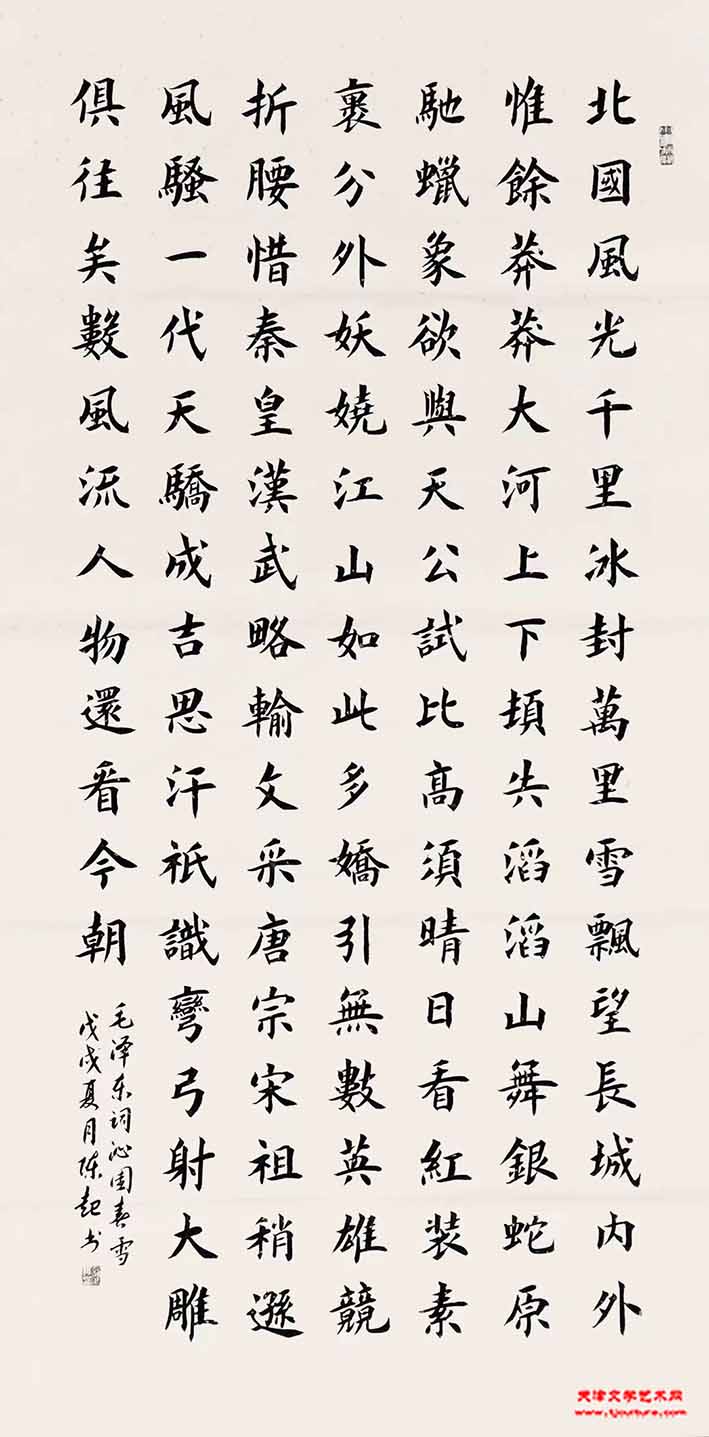 北國風光千里冰封萬里雪飄望長城內外
惟餘莽莽大河上下頓失滔滔山舞銀蛇原
馳蠟象欲與天公試比高須晴日看紅裝素
裹分外妖嬈江山如此多嬌引無數英雄競
折腰惜秦皇漢武略輸文采唐宗宋祖稍遜
風騷一代天驕成吉思汗祇識彎弓射大雕
俱往矣數風流人物還看今朝
毛泽东词沁园春雪
戊戌夏月陈起书
天津文学艺术网
www.tjculture.com